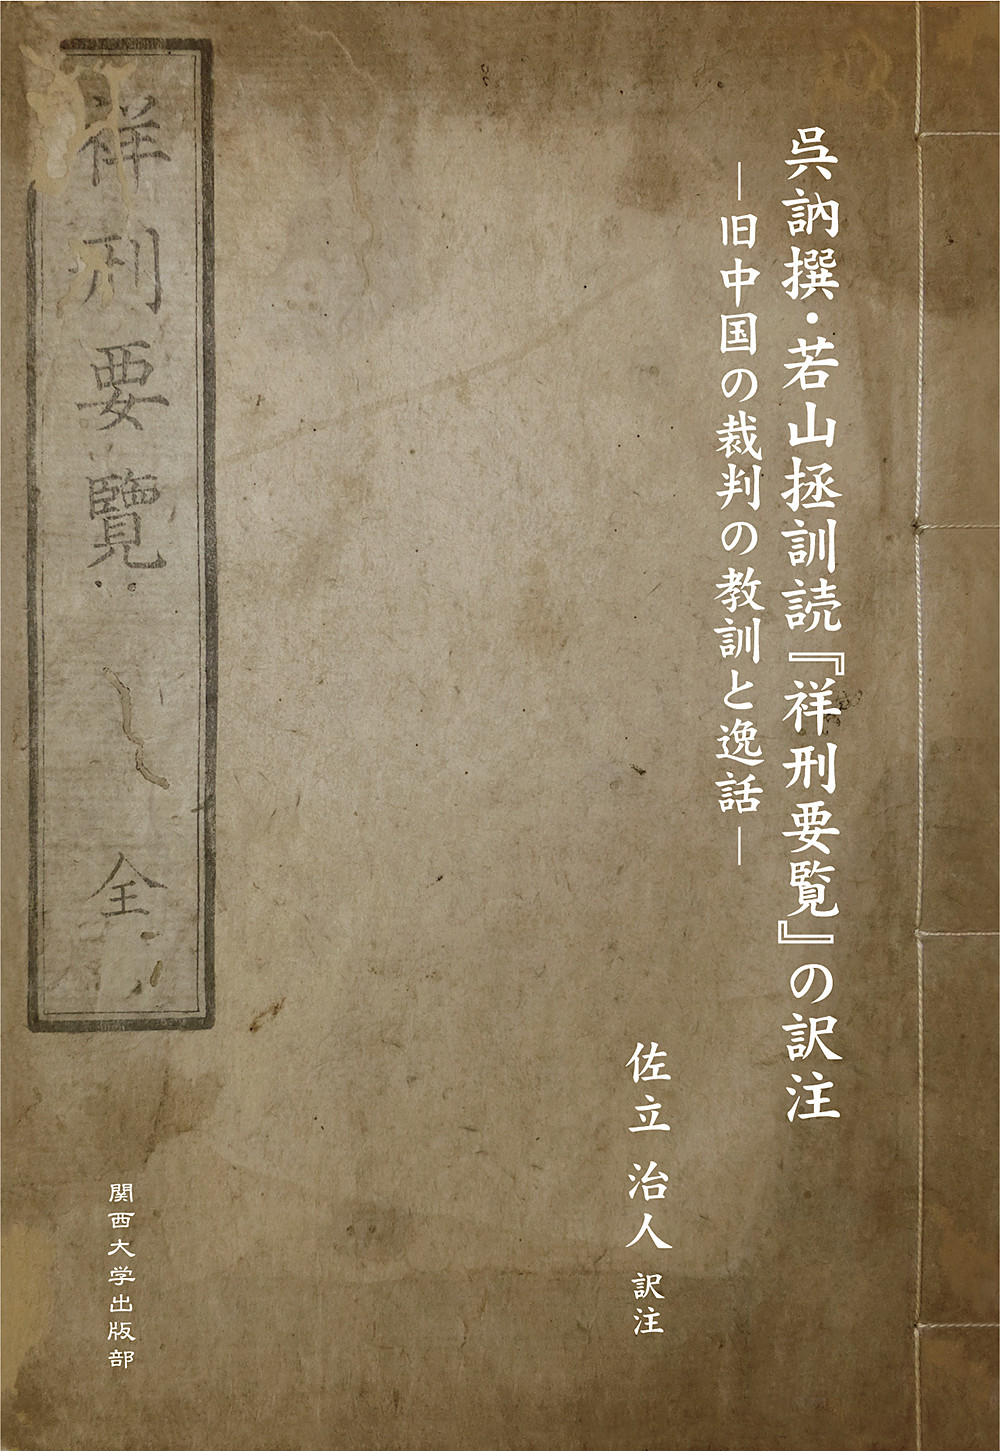 呉訥撰・若山拯訓読『祥刑要覧』の訳注
―旧中国の裁判の教訓と逸話―
佐立 治人 訳注
祥刑要覽 全
関西大学出版部